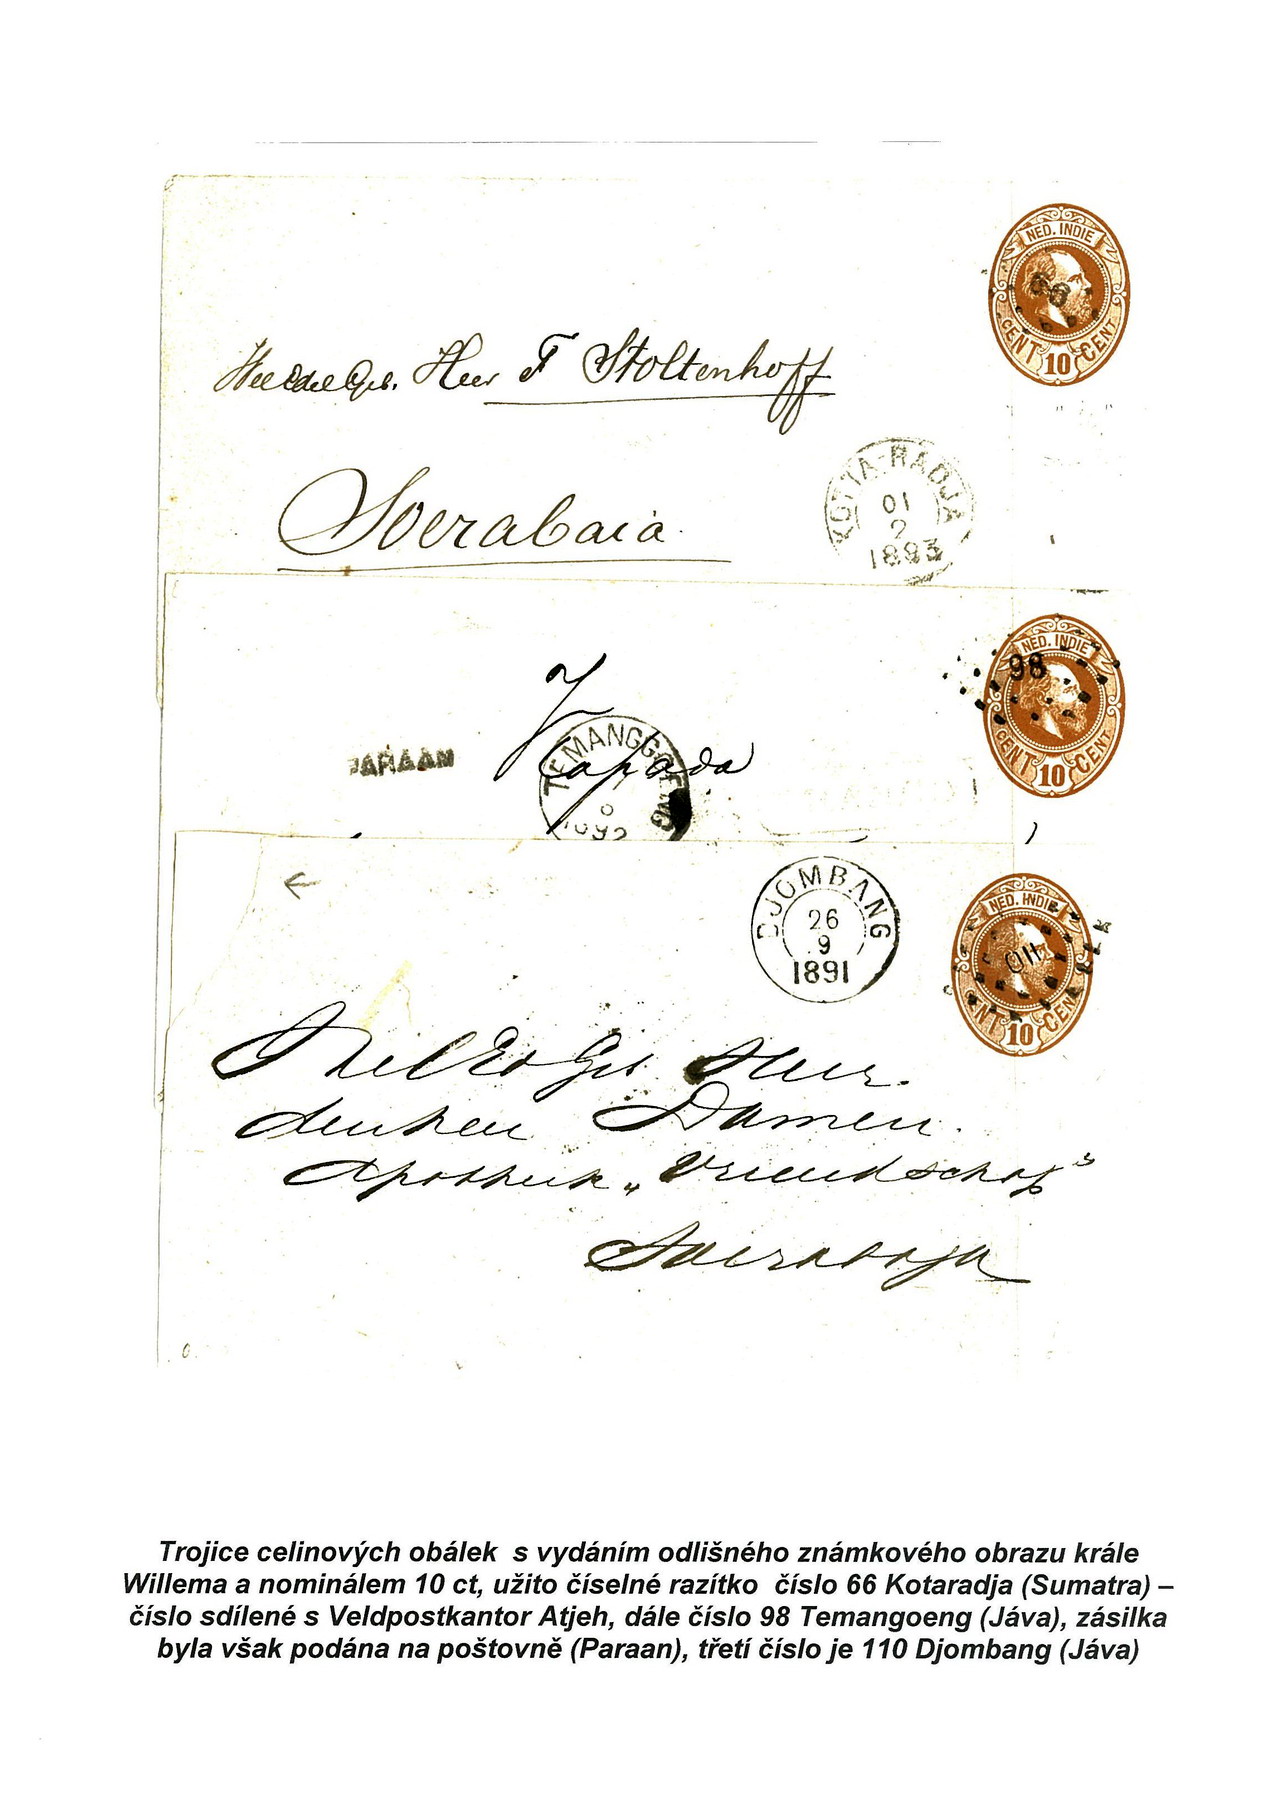 NED. INDIE
66
CENT 10 CENT
Heer F Stoltenhoff
KOTTA-RADJA
01
2
1893
Soerabaia
NED. INDIE
98
CENT 10 CENT
PARAAN
TEMANGGOENG
NED. INDIE
110
CENT 10 CENT
DJOMBANG
26
9
1891
Heer
Damen
Apotheek „Vriendschap"
Soerabaja
Trojice celinových obálek s vydáním odlišného známkového obrazu krále
Willema a nominálem 10 ct, užito číselné razítko číslo 66 Kotaradja (Sumatra) –
číslo sdílené s Veldpostkantor Atjeh, dále číslo 98 Temangoeng (Jáva), zásilka
byla však podána na poštovně (Paraan), třetí číslo je 110 Djombang (Jáva)